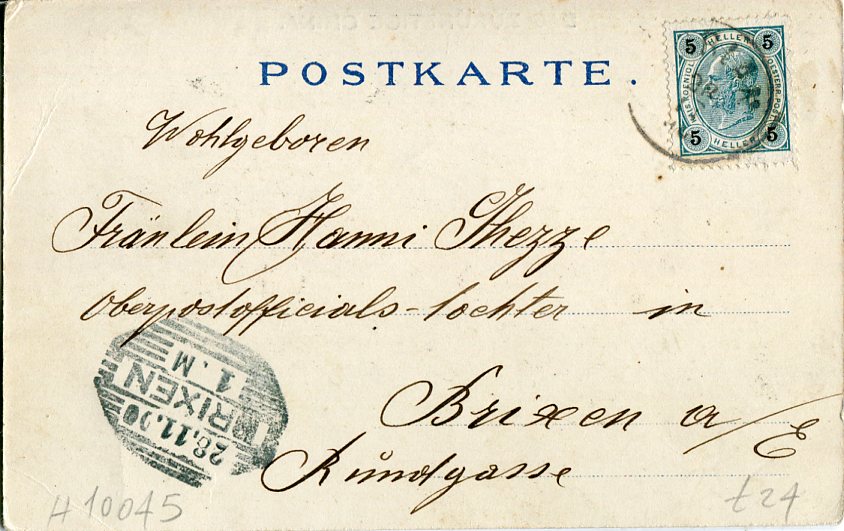 POSTKARTE.
5 HELLER 5
KAIS. KOENIGL. OESTERR. POST
5 HELLER 5
Wohlgeboren
Fräulein Hanni Ghezze
Oberpostofficials-tochter in
Brixen a/E
Rundgasse
BRIXEN
1. M
28.11.00
H 10045
t24